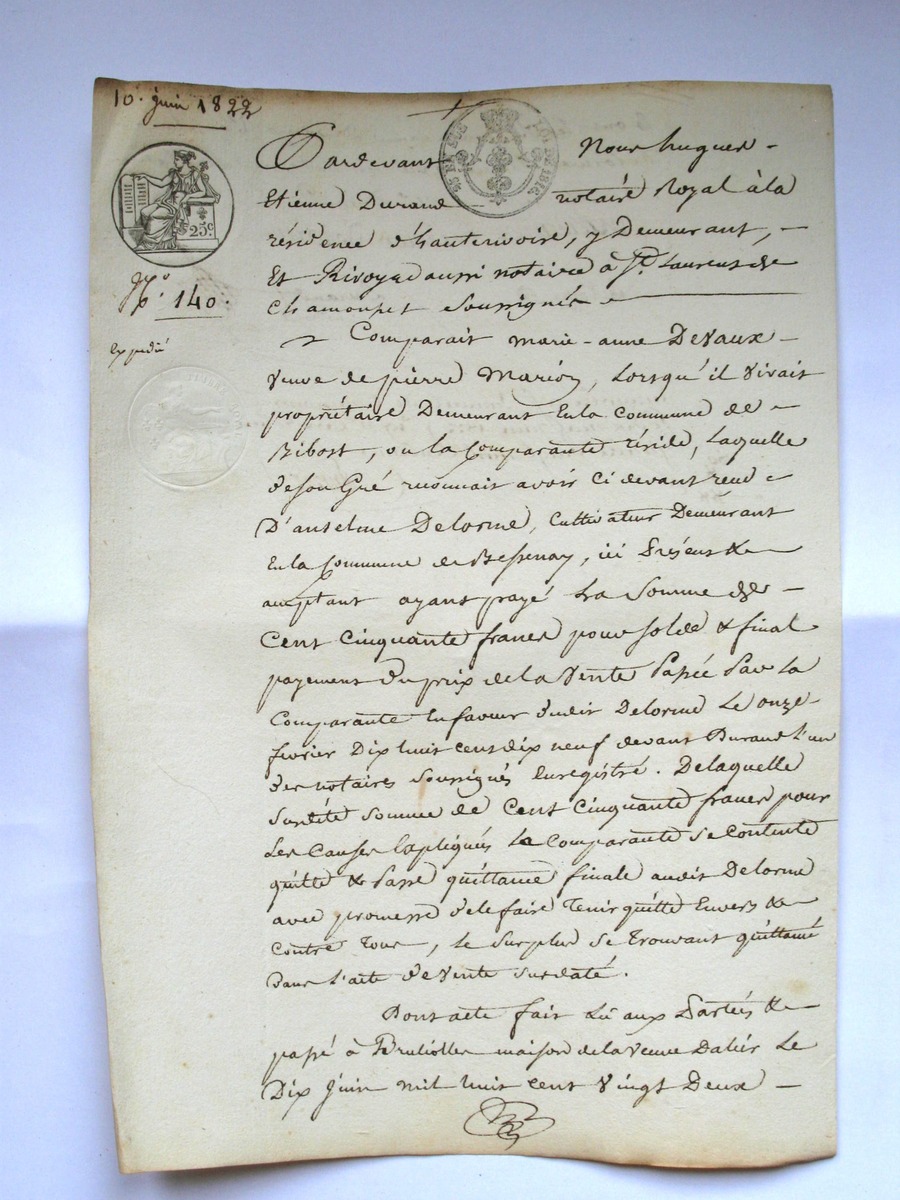 10. juin 1822
25c
No. 140.
expedié
Pardevant Nous hugues
Etienne Durand notaire Royal à la
résidence d'hauterivoire, y Demeurant,
Et Rivoyre aussi notaire à St. Laurent de
Chamousset soussignés
Comparait marie-anne Devaux
veuve de pierre Marion, Lorsqu'il vivait
propriétaire Demeurant En la Commune de
Ribost, ou la Comparante réside, Laquelle
de son Gré reconnait avoir Ci devant recu
D'anselme Delorme, Cultivateur Demeurant
En la Commune de Bessenay, ici Présent &
acceptant ayant payé La Somme de
Cent Cinquante francs pour solde & final
payement du prix de la Vente Passée Par La
Comparante En faveur dudit Delorme Le onze
fevrier Dix huit cent dix neuf devant Durand l'un
des notaires soussignés Enregistré. De laquelle
susdite somme de Cent Cinquante francs pour
Les Causes Expliqués La Comparante se Contente
quitte & Passe quittance finale audit Delorme
avec promesse de le faire Tenir quitte Envers &
Contre Tous, Le Surplus se Trouvant quittancé
Dans l'acte de Vente susdaté.
Dont acte fait Lu aux Parties &
passé à Brullioles maison de la Veuve Le
Dix juin mil huit cent Vingt Deux